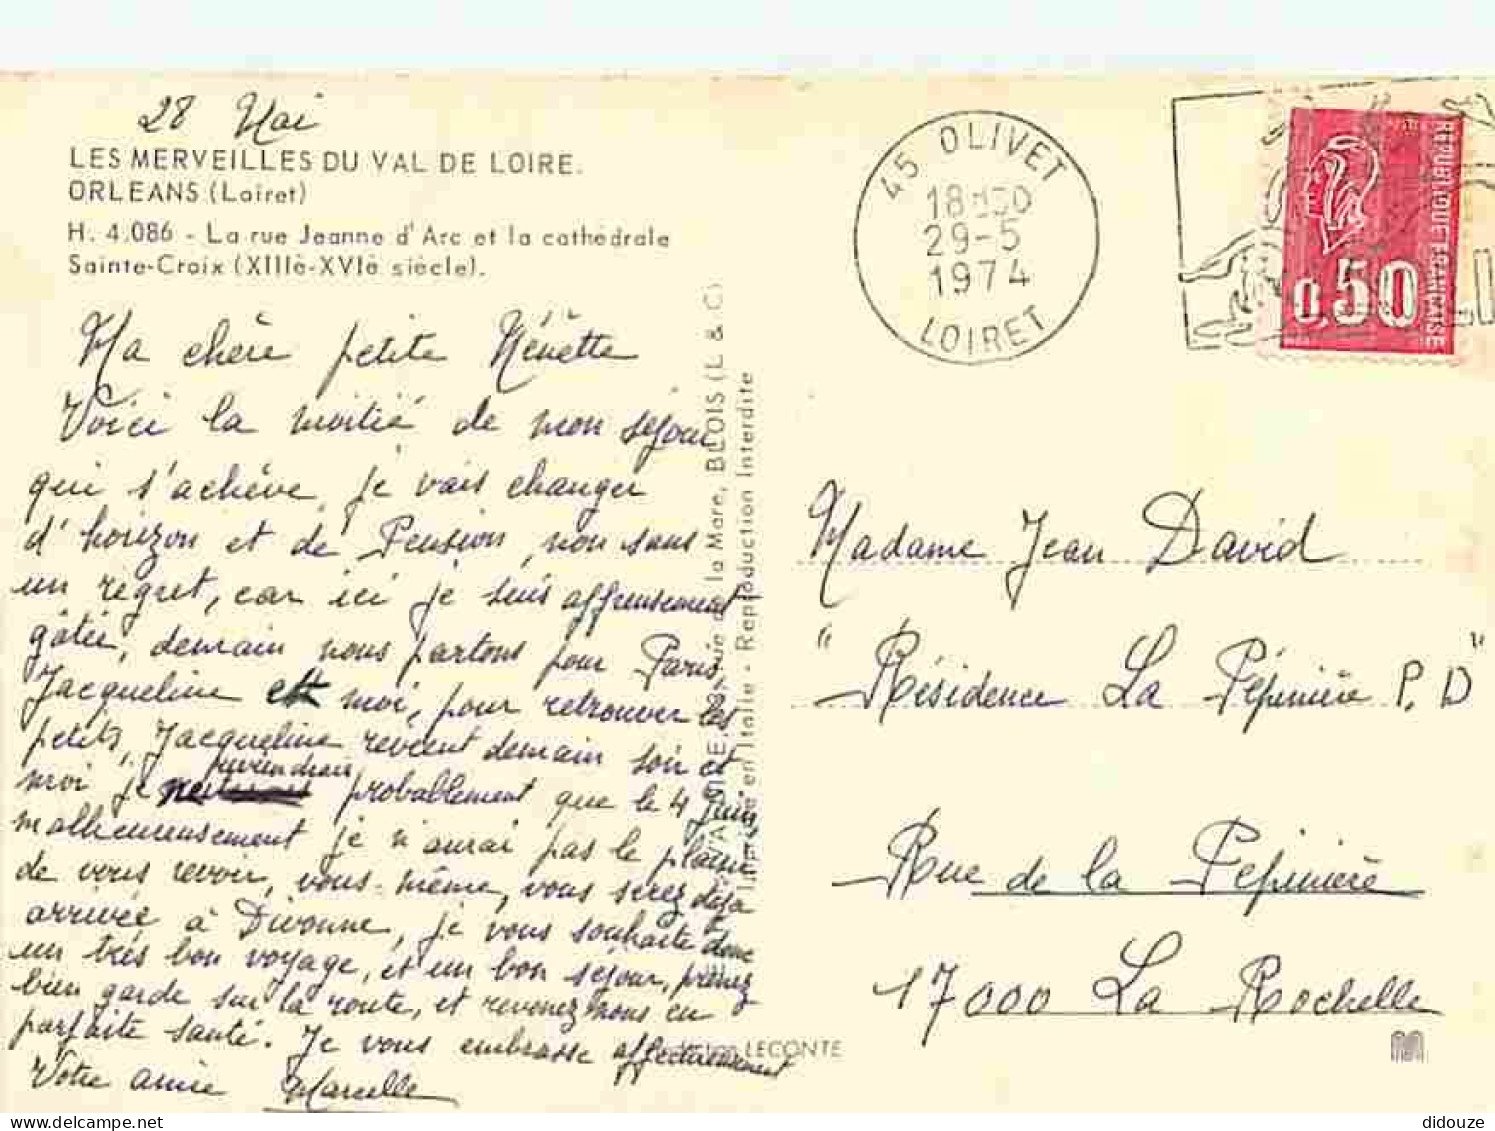 28 Mai
LES MERVEILLES DU VAL DE LOIRE.
ORLEANS (Loiret)
H. 4.086 - La rue Jeanne d'Arc et la cathédrale
Sainte-Croix (XIIIè-XVIè siècle).
Ma chère petite Nénette
Voici la moitié de mon séjour
qui s'achève, je vais changer
d'horizon et de Pension, non sans
un regret, car ici je suis affreusement
gâtée, demain nous partons pour Paris,
Jacqueline et moi, pour retrouver les
petits, Jacqueline revient demain soir et
moi je reviendrai probablement que le 4 Juin,
malheureusement je n'aurai pas le plaisir
de vous revoir, vous-même, vous serez déjà
arrivée à Divonne, je vous souhaite donc
un très bon voyage, et un bon séjour, prenez
bien garde sur la route, et revenez nous en
parfaite santé. Je vous embrasse affectueusement
Votre amie Marcelle
la Mare, BLOIS (L. & C.)
Imprimé en Italie - Reproduction Interdite
LECONTE
45 OLIVET
18H30
29-5
1974
LOIRET
REPUBLIQUE FRANÇAISE
0,50
Madame Jean David
"Résidence La Pépinière P.D"
Rue de la Pépinière
17000 La Rochelle
didouze